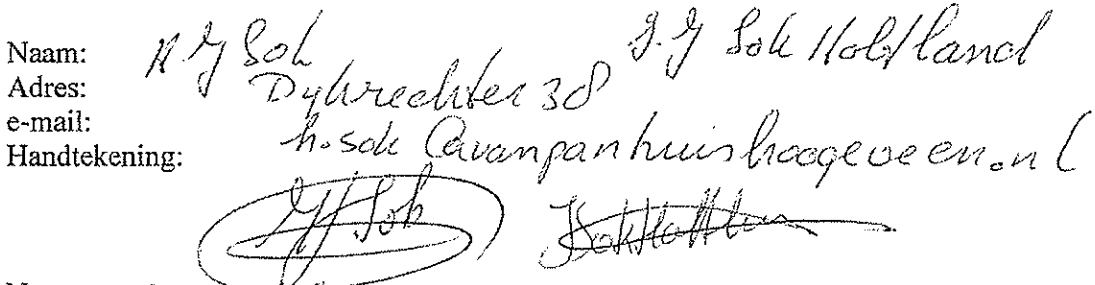 Naam: H J Sok J. J Sok Holtland
Adres: Dykrechter 38
e-mail: h.sok@vanpanhuishoogeveen.nl
Handtekening:
Sok Sok Holtl